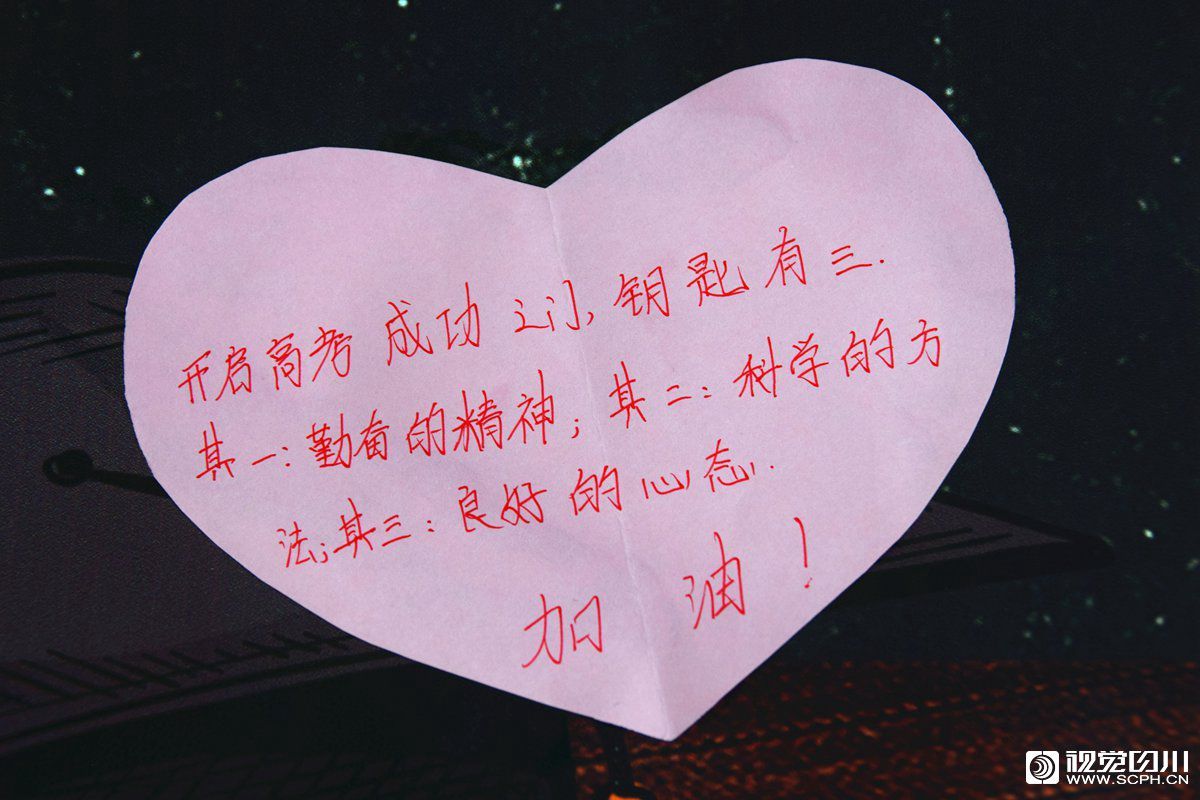 开启高考成功之门，钥匙有三.
其一：勤奋的精神；其二：科学的方
法；其三：良好的心态.
加油！
视觉四川
WWW.SCPH.CN